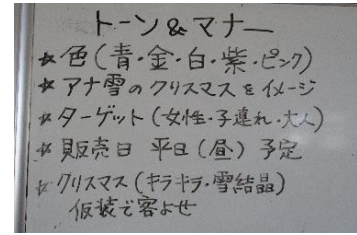 トーン&マナー
☆色(青・金・白・紫・ピンク)
☆アナ雪のクリスマスをイメージ
☆ターゲット(女性・子連れ・大人)
☆販売日 平日(昼)予定
☆クリスマス(キラキラ・雪結晶)
仮装で客よせ